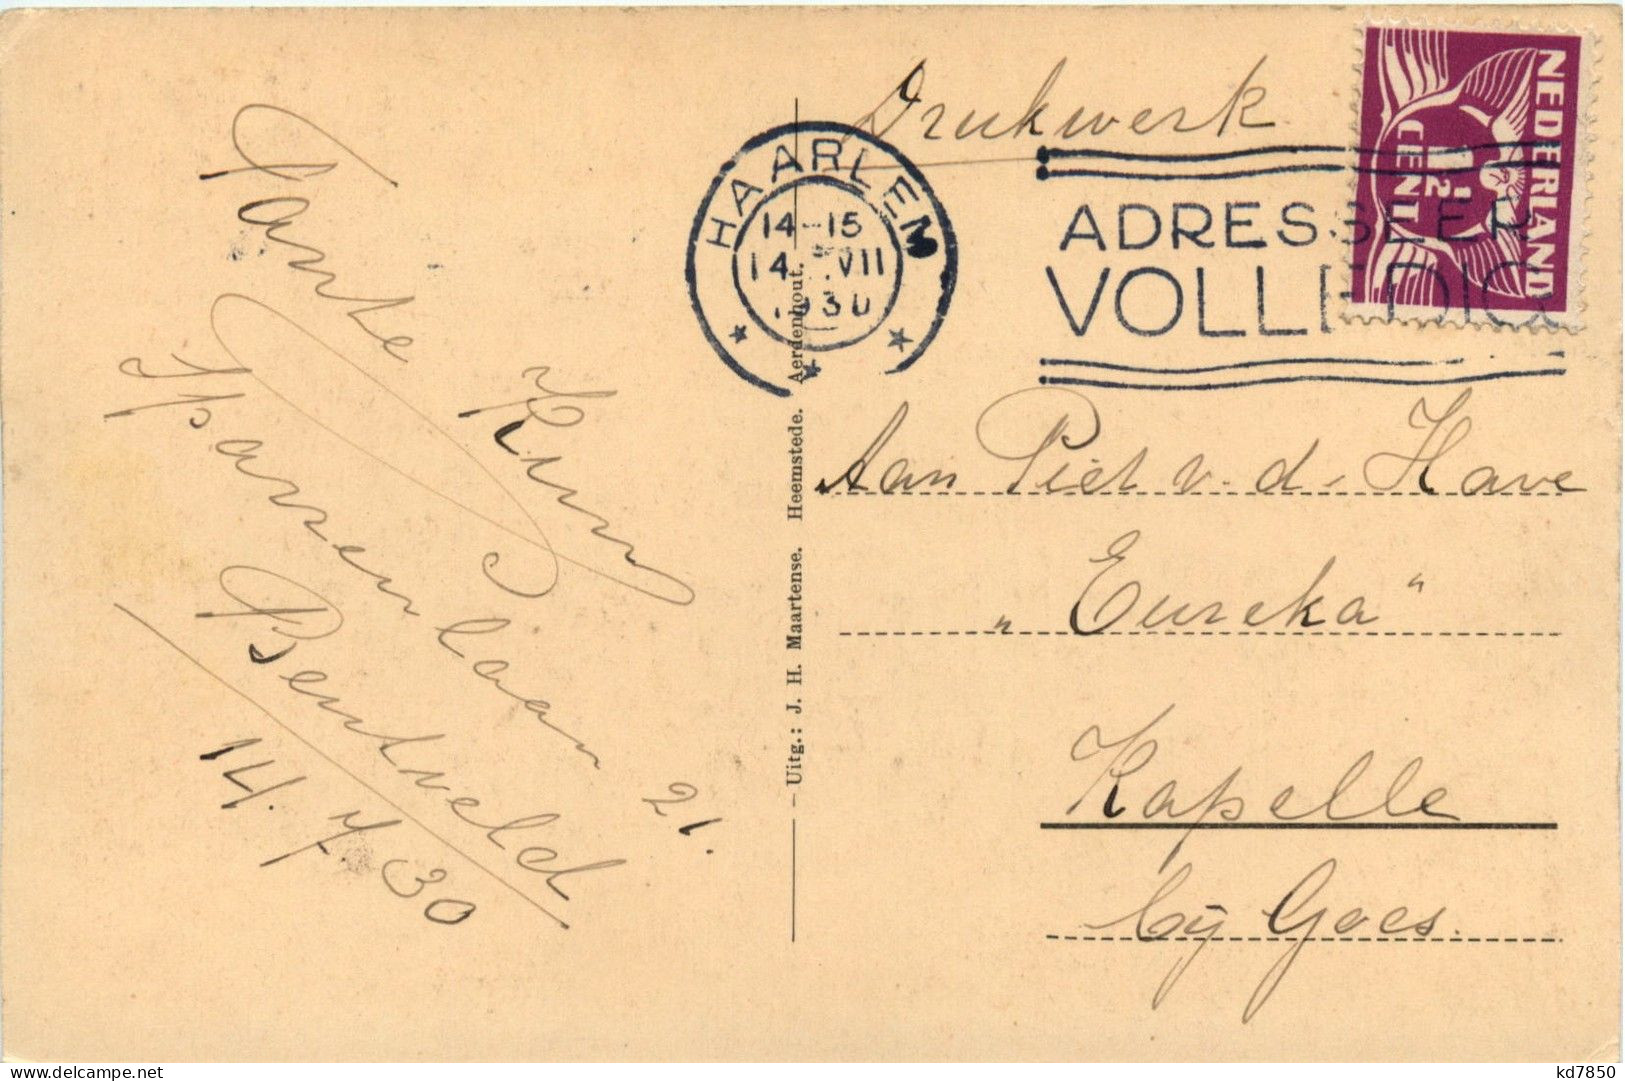 Tante
Spaarenlaan 21.
Bentveld
14. 7/ 30
Uitg.: J. H. Maartense. Heemstede. Aerdenhout.
Drukwerk
HAARLEM
14-15
14 VII
1930
ADRESSEER
VOLLEDIG
NEDERLAND
CENT
Aan Piet v. d. Have
„Eureka"
Kapelle
bij Goes.
kd7850